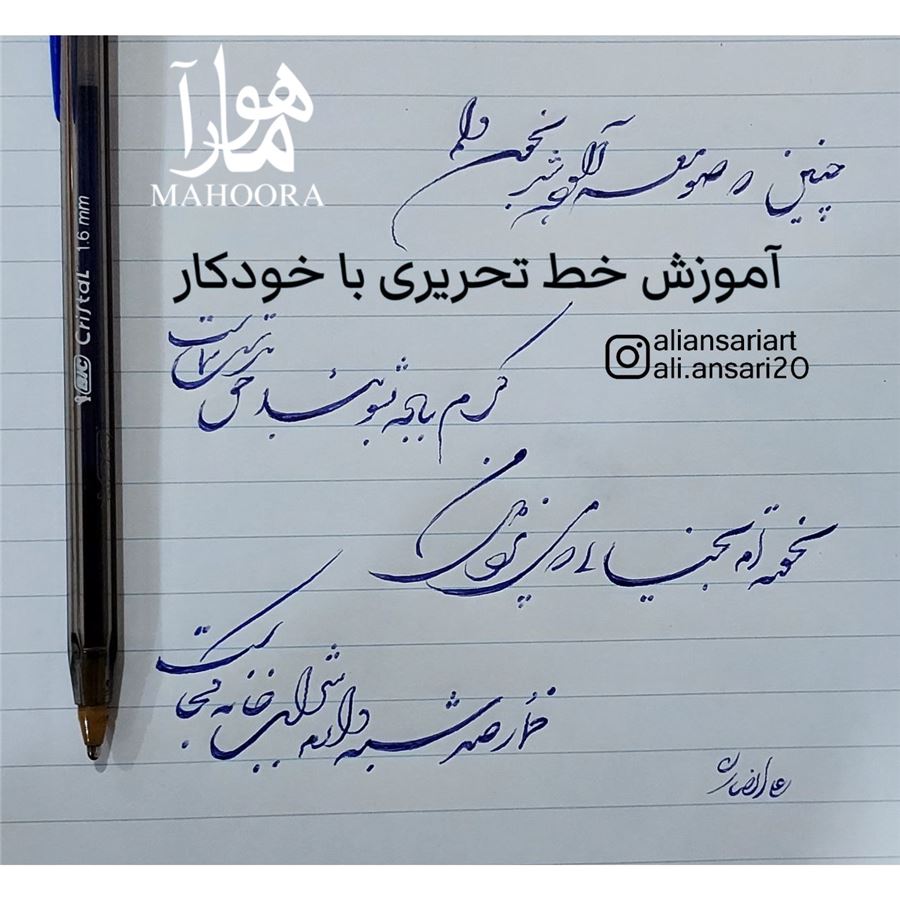 ماهورآ
MAHOORA
چنین که صومعه آلوده شد بخون دلم
آموزش خط تحریری با خودکار
aliansariart
ali.ansari20
گرم بباده بشویید حق بدست شماست
نخفته ام بخیالی که می پزد دل من
خمار صد شبه دارم شرابخانه کجاست
علی انصاری
BIC Cristal 1.6 mm